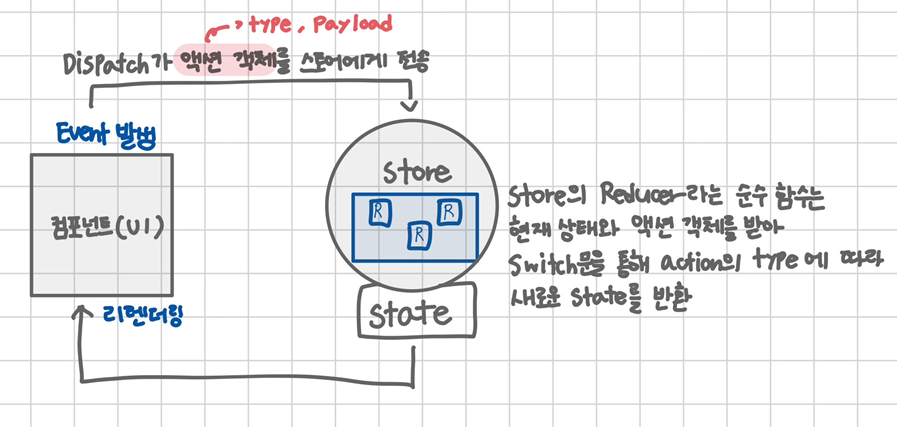 type, Payload
Dispatch가 액션 객체를 스토어에게 전송
Event 발생
컴포넌트(UI)
리렌더링
Store
R
R
R
State
Store의 Reducer라는 순수 함수는
현재 상태와 액션 객체를 받아
Switch문을 통해 action의 type에 따라
새로운 State를 반환